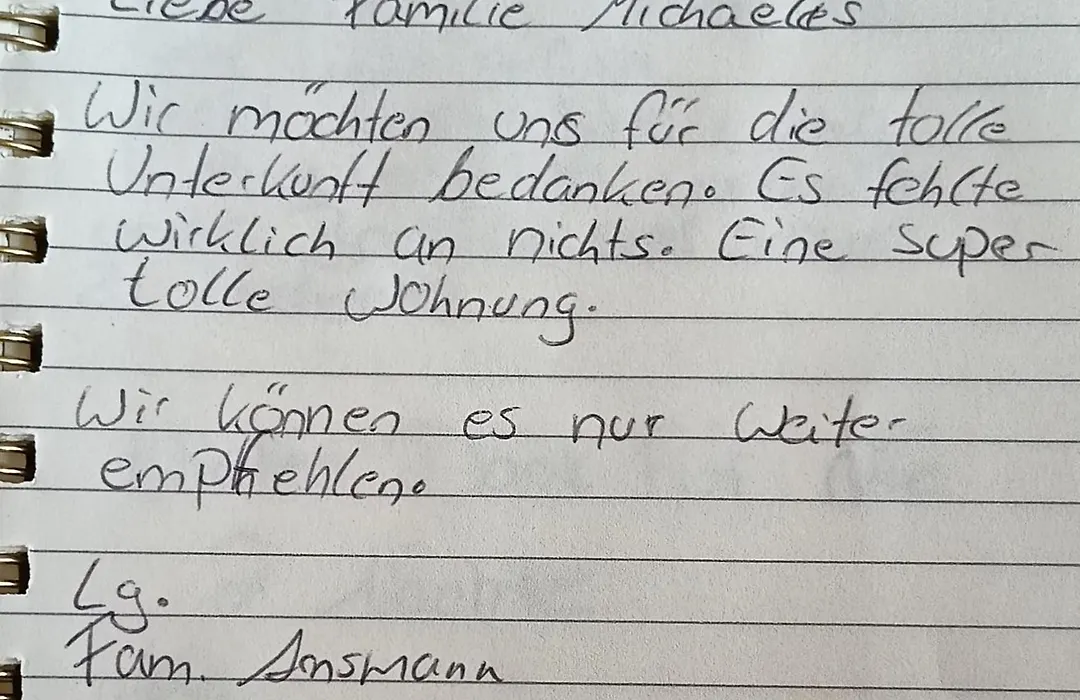 Liebe Familie Michaeles
Wir möchten uns für die tolle
Unterkunft bedanken. Es fehlte
wirklich an nichts. Eine super
tolle Wohnung.
Wir können es nur weiter-
empfehlen.
Lg.
Fam. Ansmann